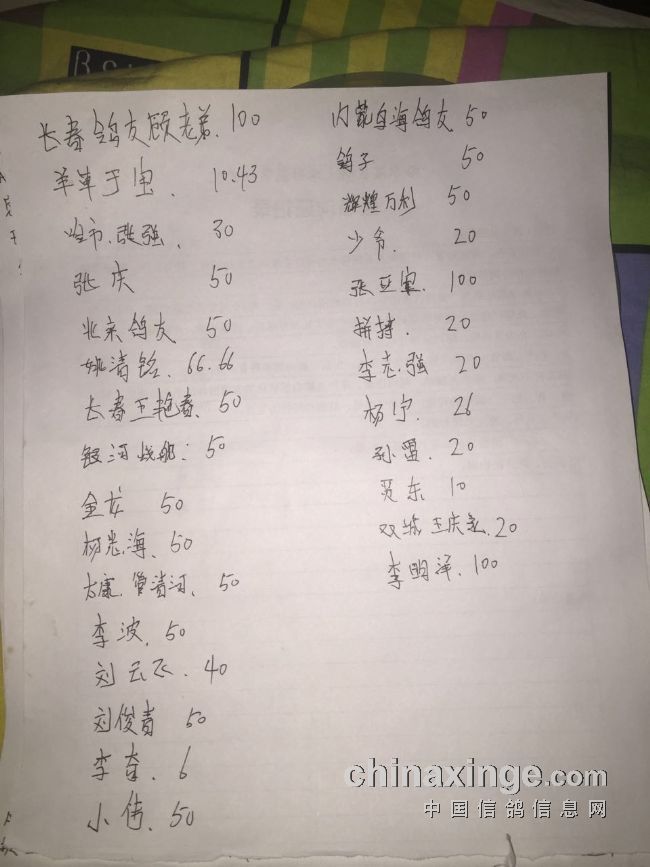 长春鸽友顾老弟.100
于宝. 10.43
哈市.张强. 30
张庆 50
北京鸽友 50
姚清铭.66.66
长春王艳春、50
银河战舰: 50
金龙 50
杨 海、50
大康.管清河、50
李波.50
刘云飞.40
刘俊青 50
李奇.6
小伟.50
内蒙乌海鸽友 50
鸽子 50
辉煌万利 50
少爷. 20
张亚 . 100
拼搏. 20
李志强 20
杨宁. 26
孙盟. 20
贾东 10
双城王庆 .20
李明洋.100
chinaxinge.com
中国信鸽信息网